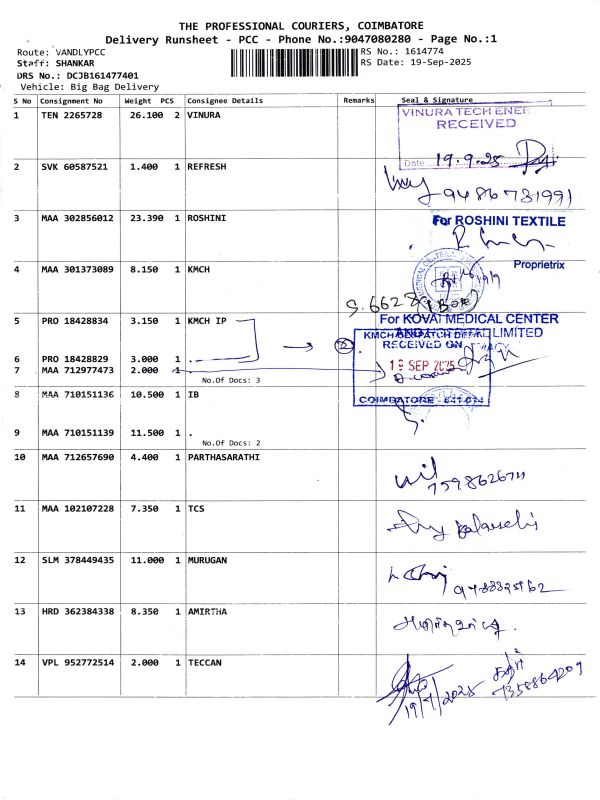 THE PROFESSIONAL COURIERS, COIMBATORE
Delivery Runsheet - PCC - Phone No.:9047080280 - Page No.:1
Route: VANDLYPCC
RS No.: 1614774
Staff: SHANKAR
RS Date: 19-Sep-2025
DRS No.: DCJB161477401
Vehicle: Big Bag Delivery
S No Consignment No Weight PCS Consignee Details Remarks Seal & Signature
1 TEN 2265728 26.100 2 VINURA
VINURA TECH ENER
RECEIVED
Date 19.9.25
2 SVK 60587521 1.400 1 REFRESH
9486731991
3 MAA 302856012 23.390 1 ROSHINI
For ROSHINI TEXTILE
Proprietrix
4 MAA 301373089 8.150 1 KMCH
S.6628 (1 BOX)
5 PRO 18428834 3.150 1 KMCH IP
For KOVAI MEDICAL CENTER
AND LIMITED
KMCH
RECEIVED ON
19 SEP 2025
COIMBATORE - 641 014
6 PRO 18428829 3.000 1 .
7 MAA 712977473 2.000 1
No.Of Docs: 3
8 MAA 710151136 10.500 1 IB
9 MAA 710151139 11.500 1 .
No.Of Docs: 2
10 MAA 712657690 4.400 1 PARTHASARATHI
11 MAA 102107228 7.350 1 TCS
12 SLM 378449435 11.000 1 MURUGAN
13 HRD 362384338 8.350 1 AMIRTHA
14 VPL 952772514 2.000 1 TECCAN
19/9/2025
7358864209